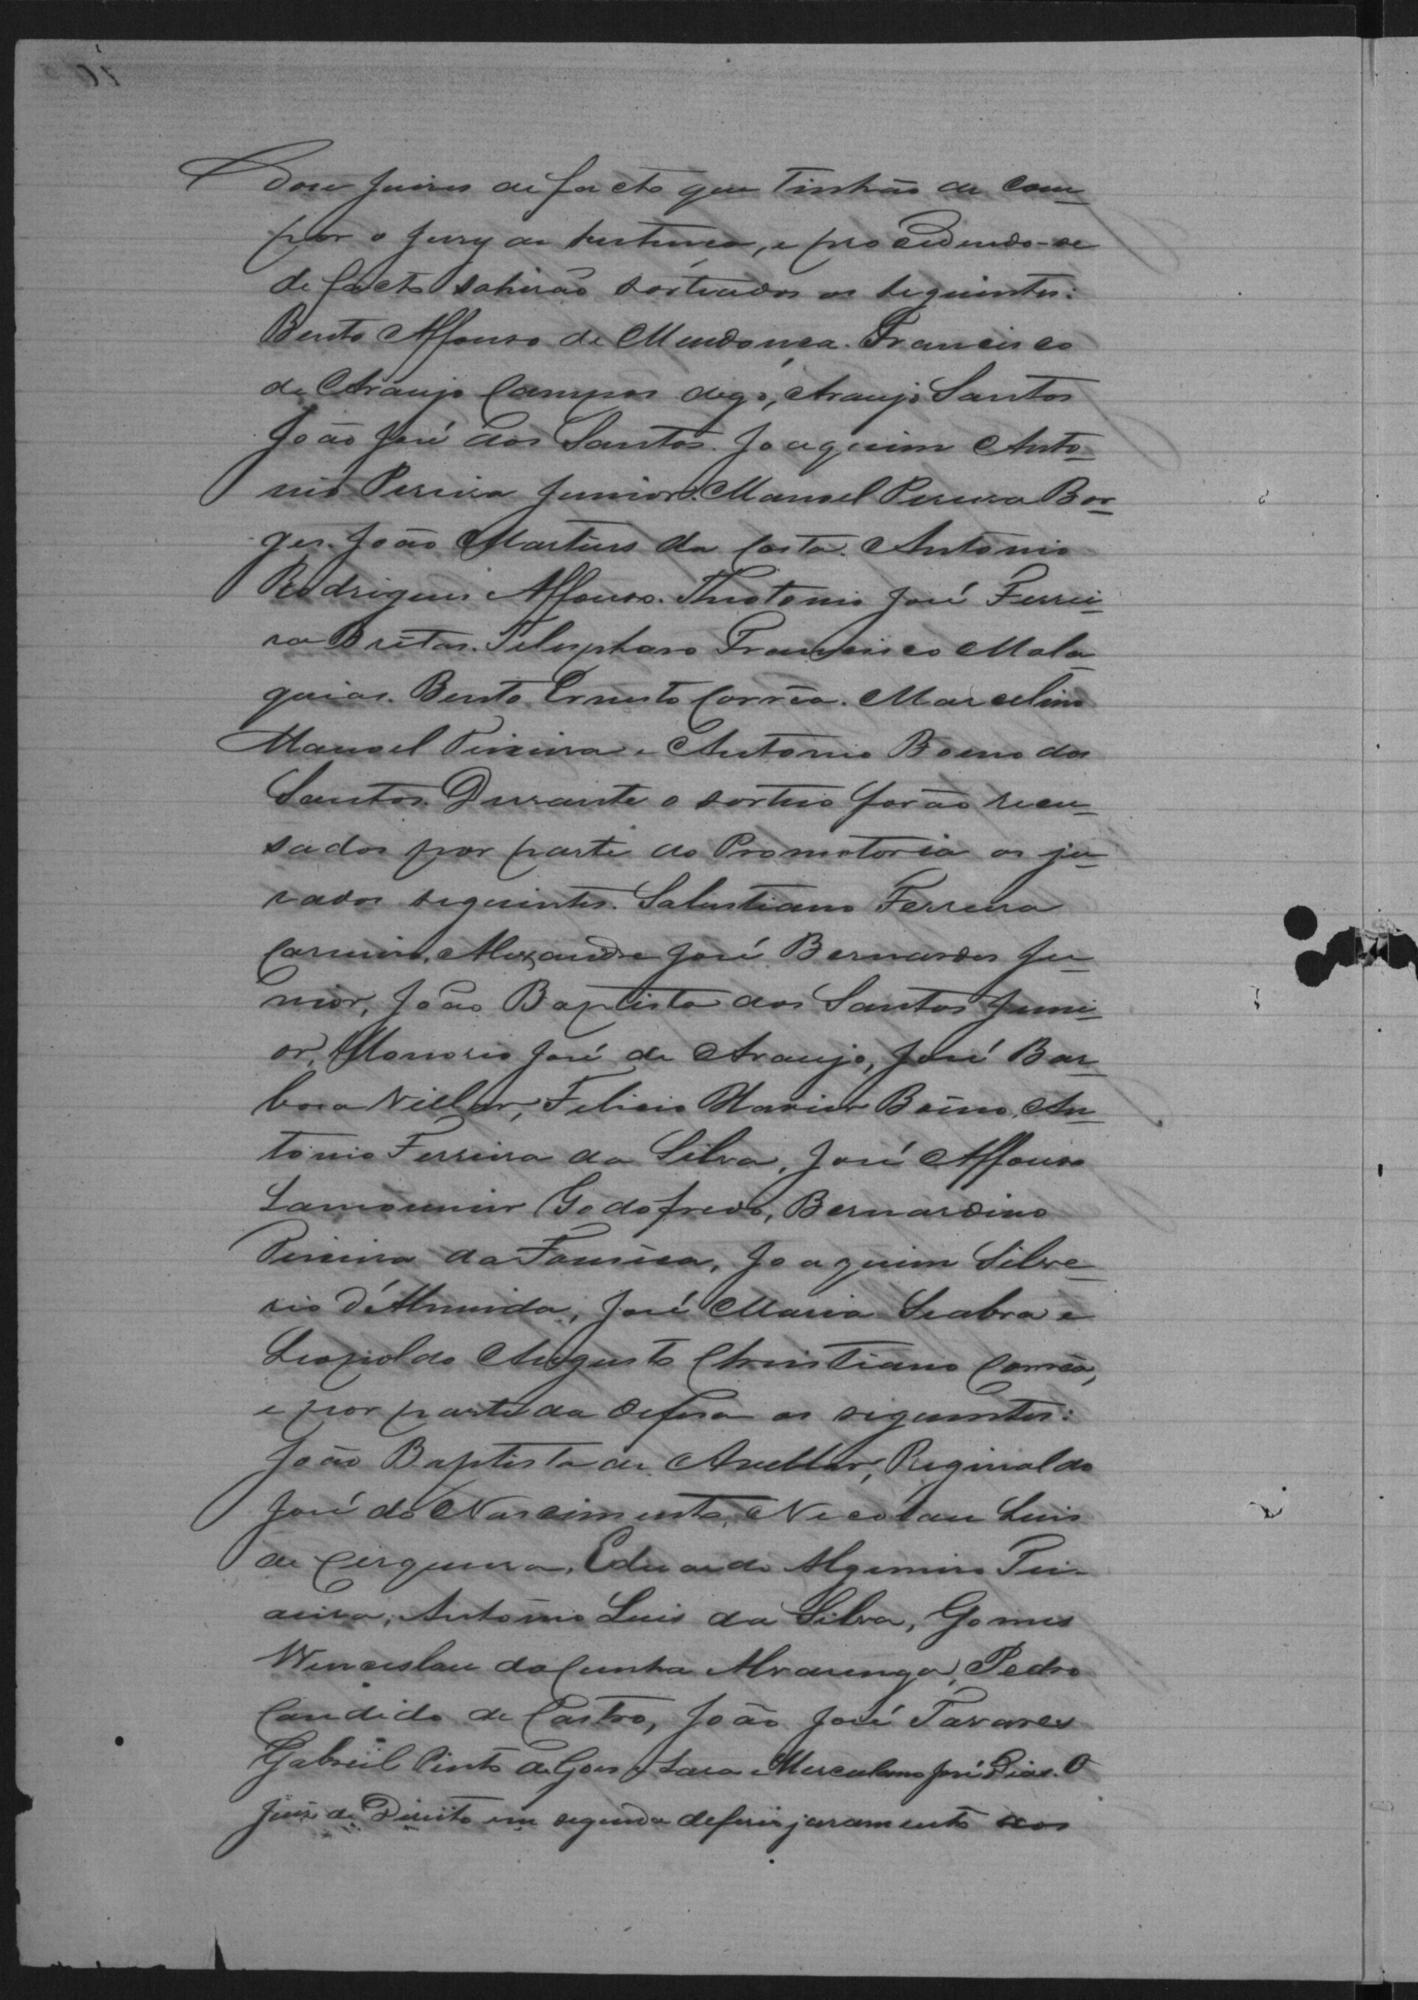 Dose Juises de facto que tinhão de com-
por o jury de sentença, e procedendo-se
de facto sahirão sorteados os seguintes:
Bento Affonso de Mendonça. Francisco
de Araujo Campos digo, Araujo Santos
João José dos Santos. Joaquim Anto-
nio Pereira Junior. Manoel Pereira Bor-
ges. João Martins da Costa. Antonio
Rodrigues Affonso. Theotonio José Ferrei-
ra Bretas. Telesphoro Francisco Mala-
quias. Bento Ernesto Corrêa. Marcelino
Manoel Teixeira e Antonio Boeno dos
Santos. Durante o sorteio forão recu-
sados por parte da Promotoria os ju-
rados seguintes. Salustiano Ferreira
Alexandre José Bernardes Ju-
nior, João Baptista dos Santos Juni-
or, Honorio José de Araujo, José Bar-
bosa Villar, Felicio Xavier Boeno, An-
tonio Ferreira da Silva, José Affonso
Lamounier Godofredo, Bernardino
Pereira da Fonseca, Joaquim Silve-
rio d'Almeida, José Maria Seabra e
Leopoldo Augusto Christiano Corrêa,
e por parte da defesa os seguintes:
João Baptista de Avellar, Reginaldo
José do Nascimento, Nicolau Luis
de Cerqueira, Eduardo Algemiro Tei-
xeira, Antonio Luis da Silva, Gomes
Wenceslau da Cunha Alvarenga, Pedro
Candido de Castro, João José Tavares
Gabriel Pinto de Goes e Lara e Herculano José Dias. O
Juiz de Direito em seguida deferio juramento aos